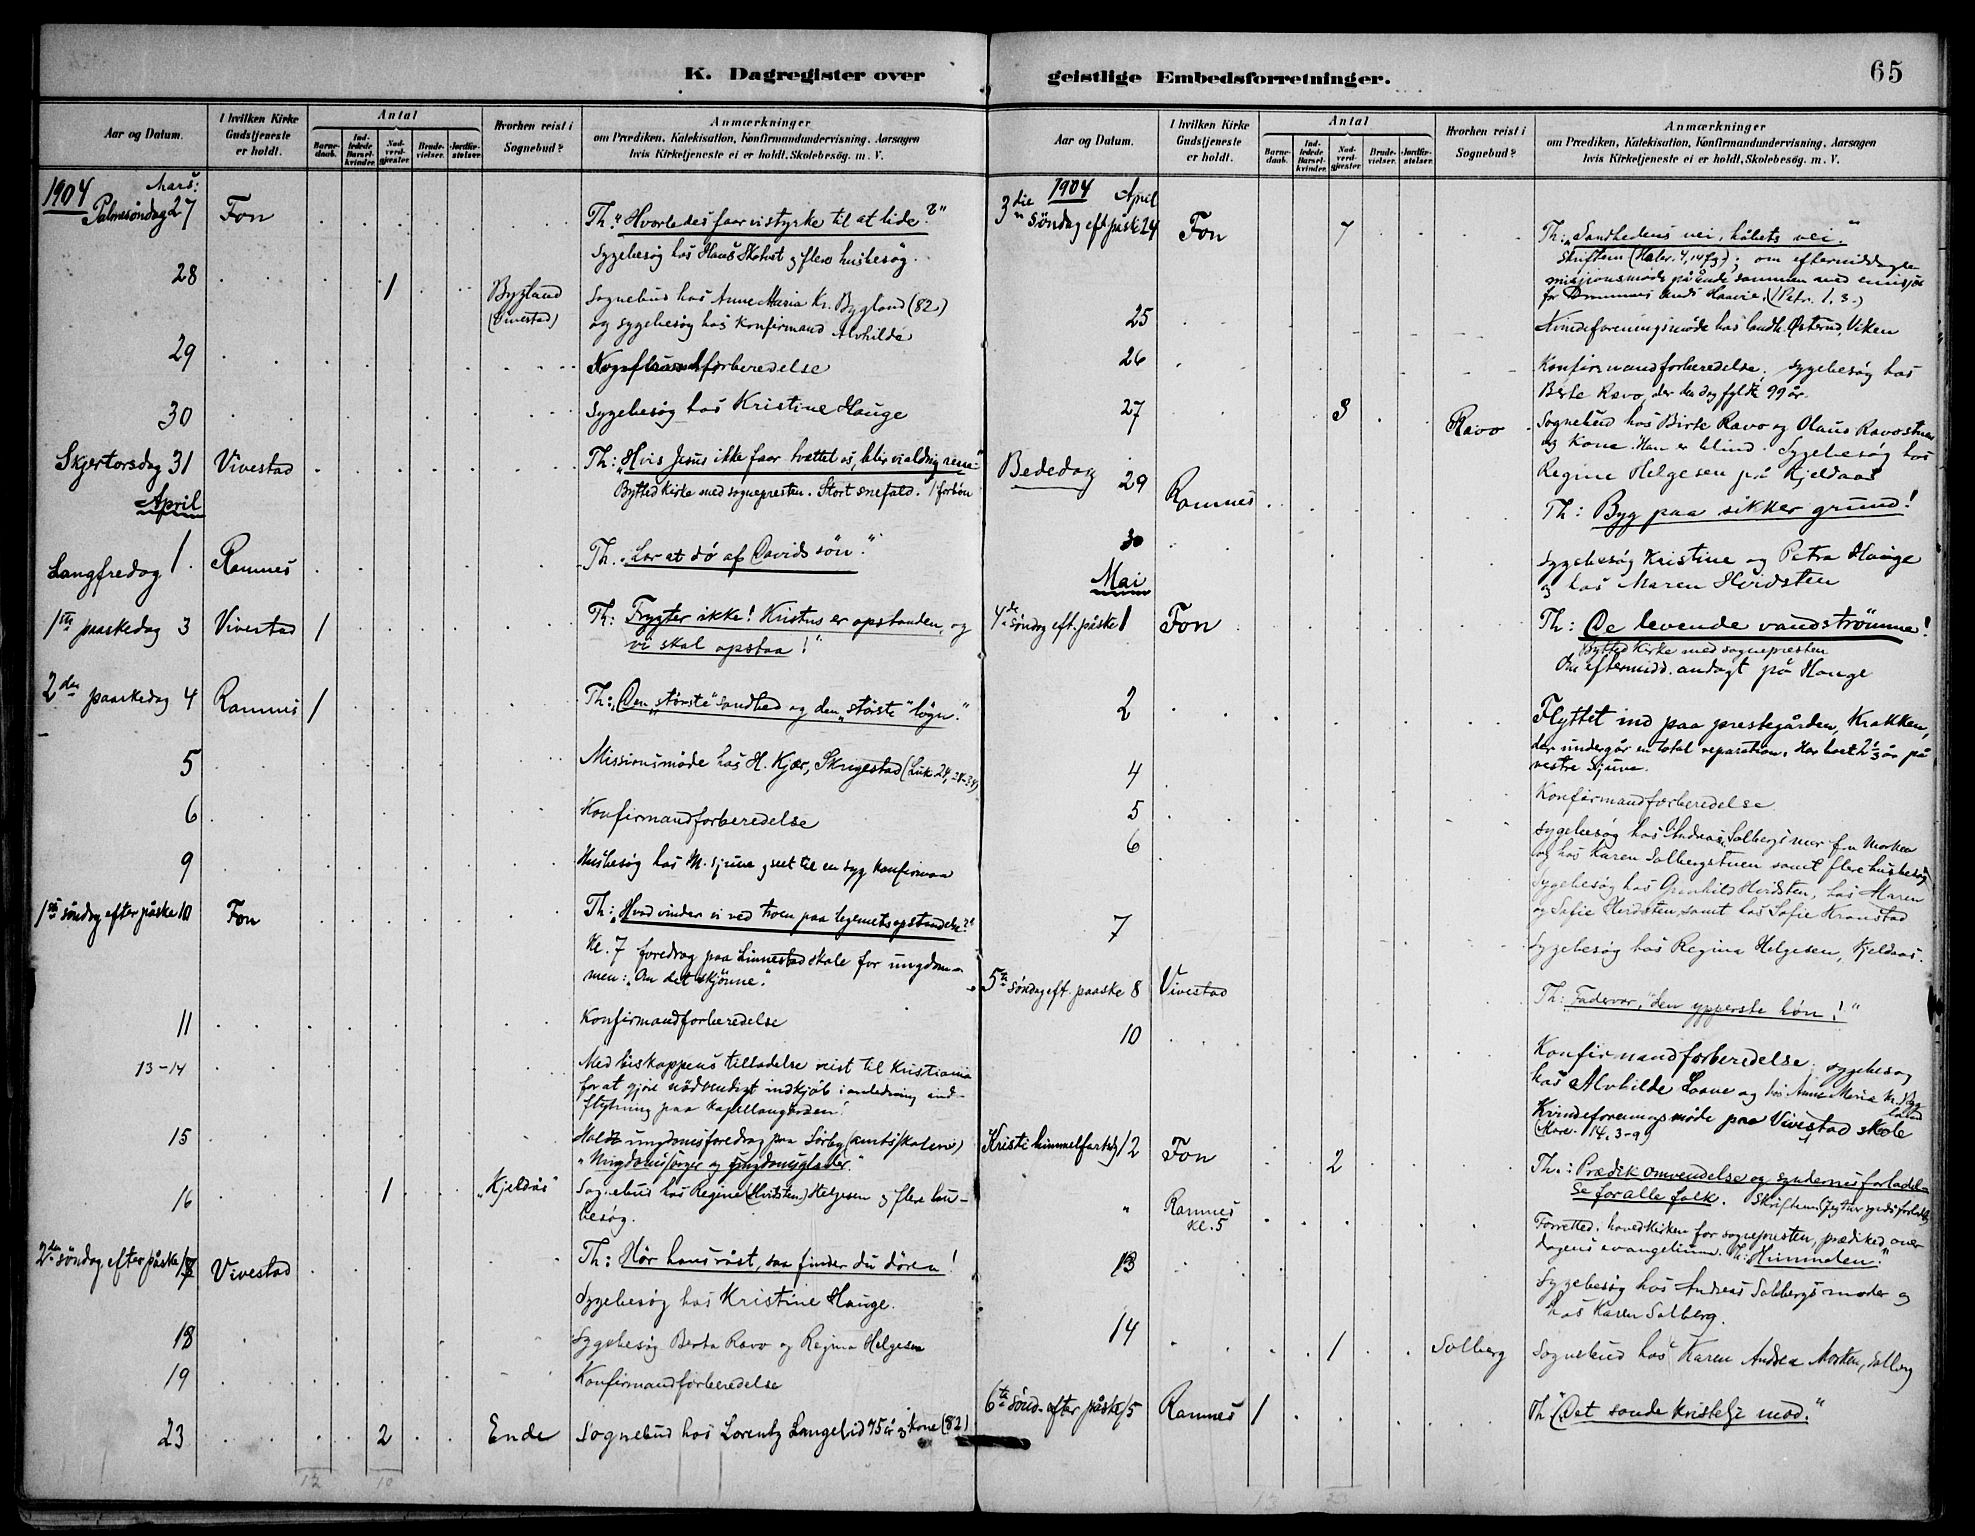 K. Dagregister over
geistlige Embedsforretninger.
65
Aar og Datum.
I hvilken Kirke
Gudstjeneste
er holdt.
Antal
Barne-
daab.
Ind-
ledede
Barsel-
kvinder.
Nad-
verd-
gjæster
Brude-
vielser.
Jordfæ-
stelser.
Hvorhen reist i
Sognebud?
Anmærkninger
om Prædiken, Katekisation, Konfirmandundervisning, Aarsagen
hvis Kirketjeneste ei er holdt, Skolebesög. m. V.
1904 Mars:
Palmesøndag 27 Fon Th. "Hvorledes faar vi styrke til at lide?"
Sygebesøg hos Hans og flere husbesøg.
28 1 Bygland Sognebud hos Anne Maria Kr. Bygland (82)
(Vivestad) og sygebesøg hos Konfirmand Alvhilde
29 forberedelse
30 Sygebesøg hos Kristine Hauge
Skjertorsdag 31 Vivestad Th: "Hvis Jesus ikke faar tvættet os, blir vi aldrig rene"
Bytted Kirke med sognepresten. Stort snefald. 1 forbøn
April
Langfredag 1. Ramnes Th. "Lær at dö af Davids sön."
1ste paaskedag 3 Vivestad 1 Th: Frygter ikke! Kristus er opstanden, og
vi skal opstaa!"
2den paaskedag 4 Ramnes 1 Th: "Den "største" sandhed og den "største" løgn."
5 Missionsmøde hos H. Kjær, Skrigestad (Luk. 24,
6 Konfirmandforberedelse
9 Husbesøg hos M. Sjuve og set til en syg Konfirman
1ste søndag efter påske 10 Fon Th: "Hvad vinder vi ved troen paa legemets opstandelse?"
Kl. 7 foredrag paa Linnestad skole for ungdom-
men: "Om det skjønne."
11 Konfirmandforberedelse
13-14 Med biskoppens tilladelse reist til Kristiania
for at gjøre nödvendigt indkjøb i anledning ind-
flytning paa
15 Holdt ungdomsforedrag paa Sörby (amtsskolen)
"Ungdomssorger og ungdomsglæder."
16 1 "Kjeldås" Sognebud hos Regine (Hvitsten) Helgesen og flere hus-
besøg.
2den söndag efter påske 17 Vivestad Th: Hør hans røst, saa finder du døren!
Sygebesøg hos Kristine Hauge.
18 Sygebesøg Berta Ravo og Regina Helgesen
19 Konfirmandforberedelse
23 2 Ende Sognebud hos Lorentz Langelid 75 år og Kone (82)
12 10
Aar og Datum.
I hvilken Kirke
Gudstjeneste
er holdt.
Antal
Barne-
daab.
Ind-
ledede
Barsel-
kvinder.
Nad-
verd-
gjæster
Brude-
vielser.
Jordfæ-
stelser.
Hvorhen reist i
Sognebud?
Anmærkninger
om Prædiken, Katekisation, Konfirmandundervisning, Aarsagen
hvis Kirketjeneste ei er holdt, Skolebesög. m. V.
1904 April
3die søndag eft. påske 24 Fon 7 Th: "Sandhedens vei, håbets vei."
Skriftem. om eftermiddagen
missionsmøde på Ende sammen med
(1 Petr. 1,3.)
25 Kvindeforeningsmøde hos Viken
26 Konfirmandforberedelse; Sygebesøg hos
Berte Ravo, der da dag fylte 99 år.
27 3 Ravo Sognebud hos Birte Ravo og Olaus Ravostuen
og Kone. Han er blind. Sygebesøg hos
Regine Helgesen på Kjeldaas
Bededag 29 Ramnes Th: Byg paa sikker grund!
30 Sygebesøg Kristine og Petra Hauge
og hos Maren Hvidsten
Mai
4de søndag eft. påske 1 Fon Th: De levende vandstrømme!
Bytted Kirke med sognepresten
Om eftermidd. andagt på Hauge
2 Flyttet ind paa prestegården, Krakken,
der undergår en total reparation. Har boet 2½ år på
vestre Sjuve.
4 Konfirmandforberedelse
5 Sygebesøg hos Andreas Solbergs mor
6 og hos Karen Solbergstuen samt flere husbesøg
Sygebesøg hos Gunhild Hvidsten, hos Maren
og Sofie Hvidsten, samt hos Sofie
7 Sygebesøg hos Regina Helgesen, Kjeldaas.
5te søndag eft. paaske 8 Vivestad Th: Fadervor, "den ypperste bön!"
10 Konfirmandforberedelse; sygebesøg
hos Alvhilde og hos Anne Maria Kr. Byg
land
Kvindeforeningsmøde paa Vivestad skole
(Marc. 14, 3-9)
Kristi himmelfartsdg 12 Fon 2 Th.: Prædik omvendelse og syndernes forladel-
se for alle folk. Skriftem.
" Ramnes Forretted i hovedkirken for sognepresten, prædiked over
kl. 5 dagens evangelium. Th: Himmelen."
13 Sygebesøg hos Andreas Solbergs moder og
hos Karen Solberg.
14 1 Solberg Sognebud hos Karen Andrea Morken, Solberg
6te sønd. efter påske 15 Ramnes 1 Th. "Det sande kristelige mod."